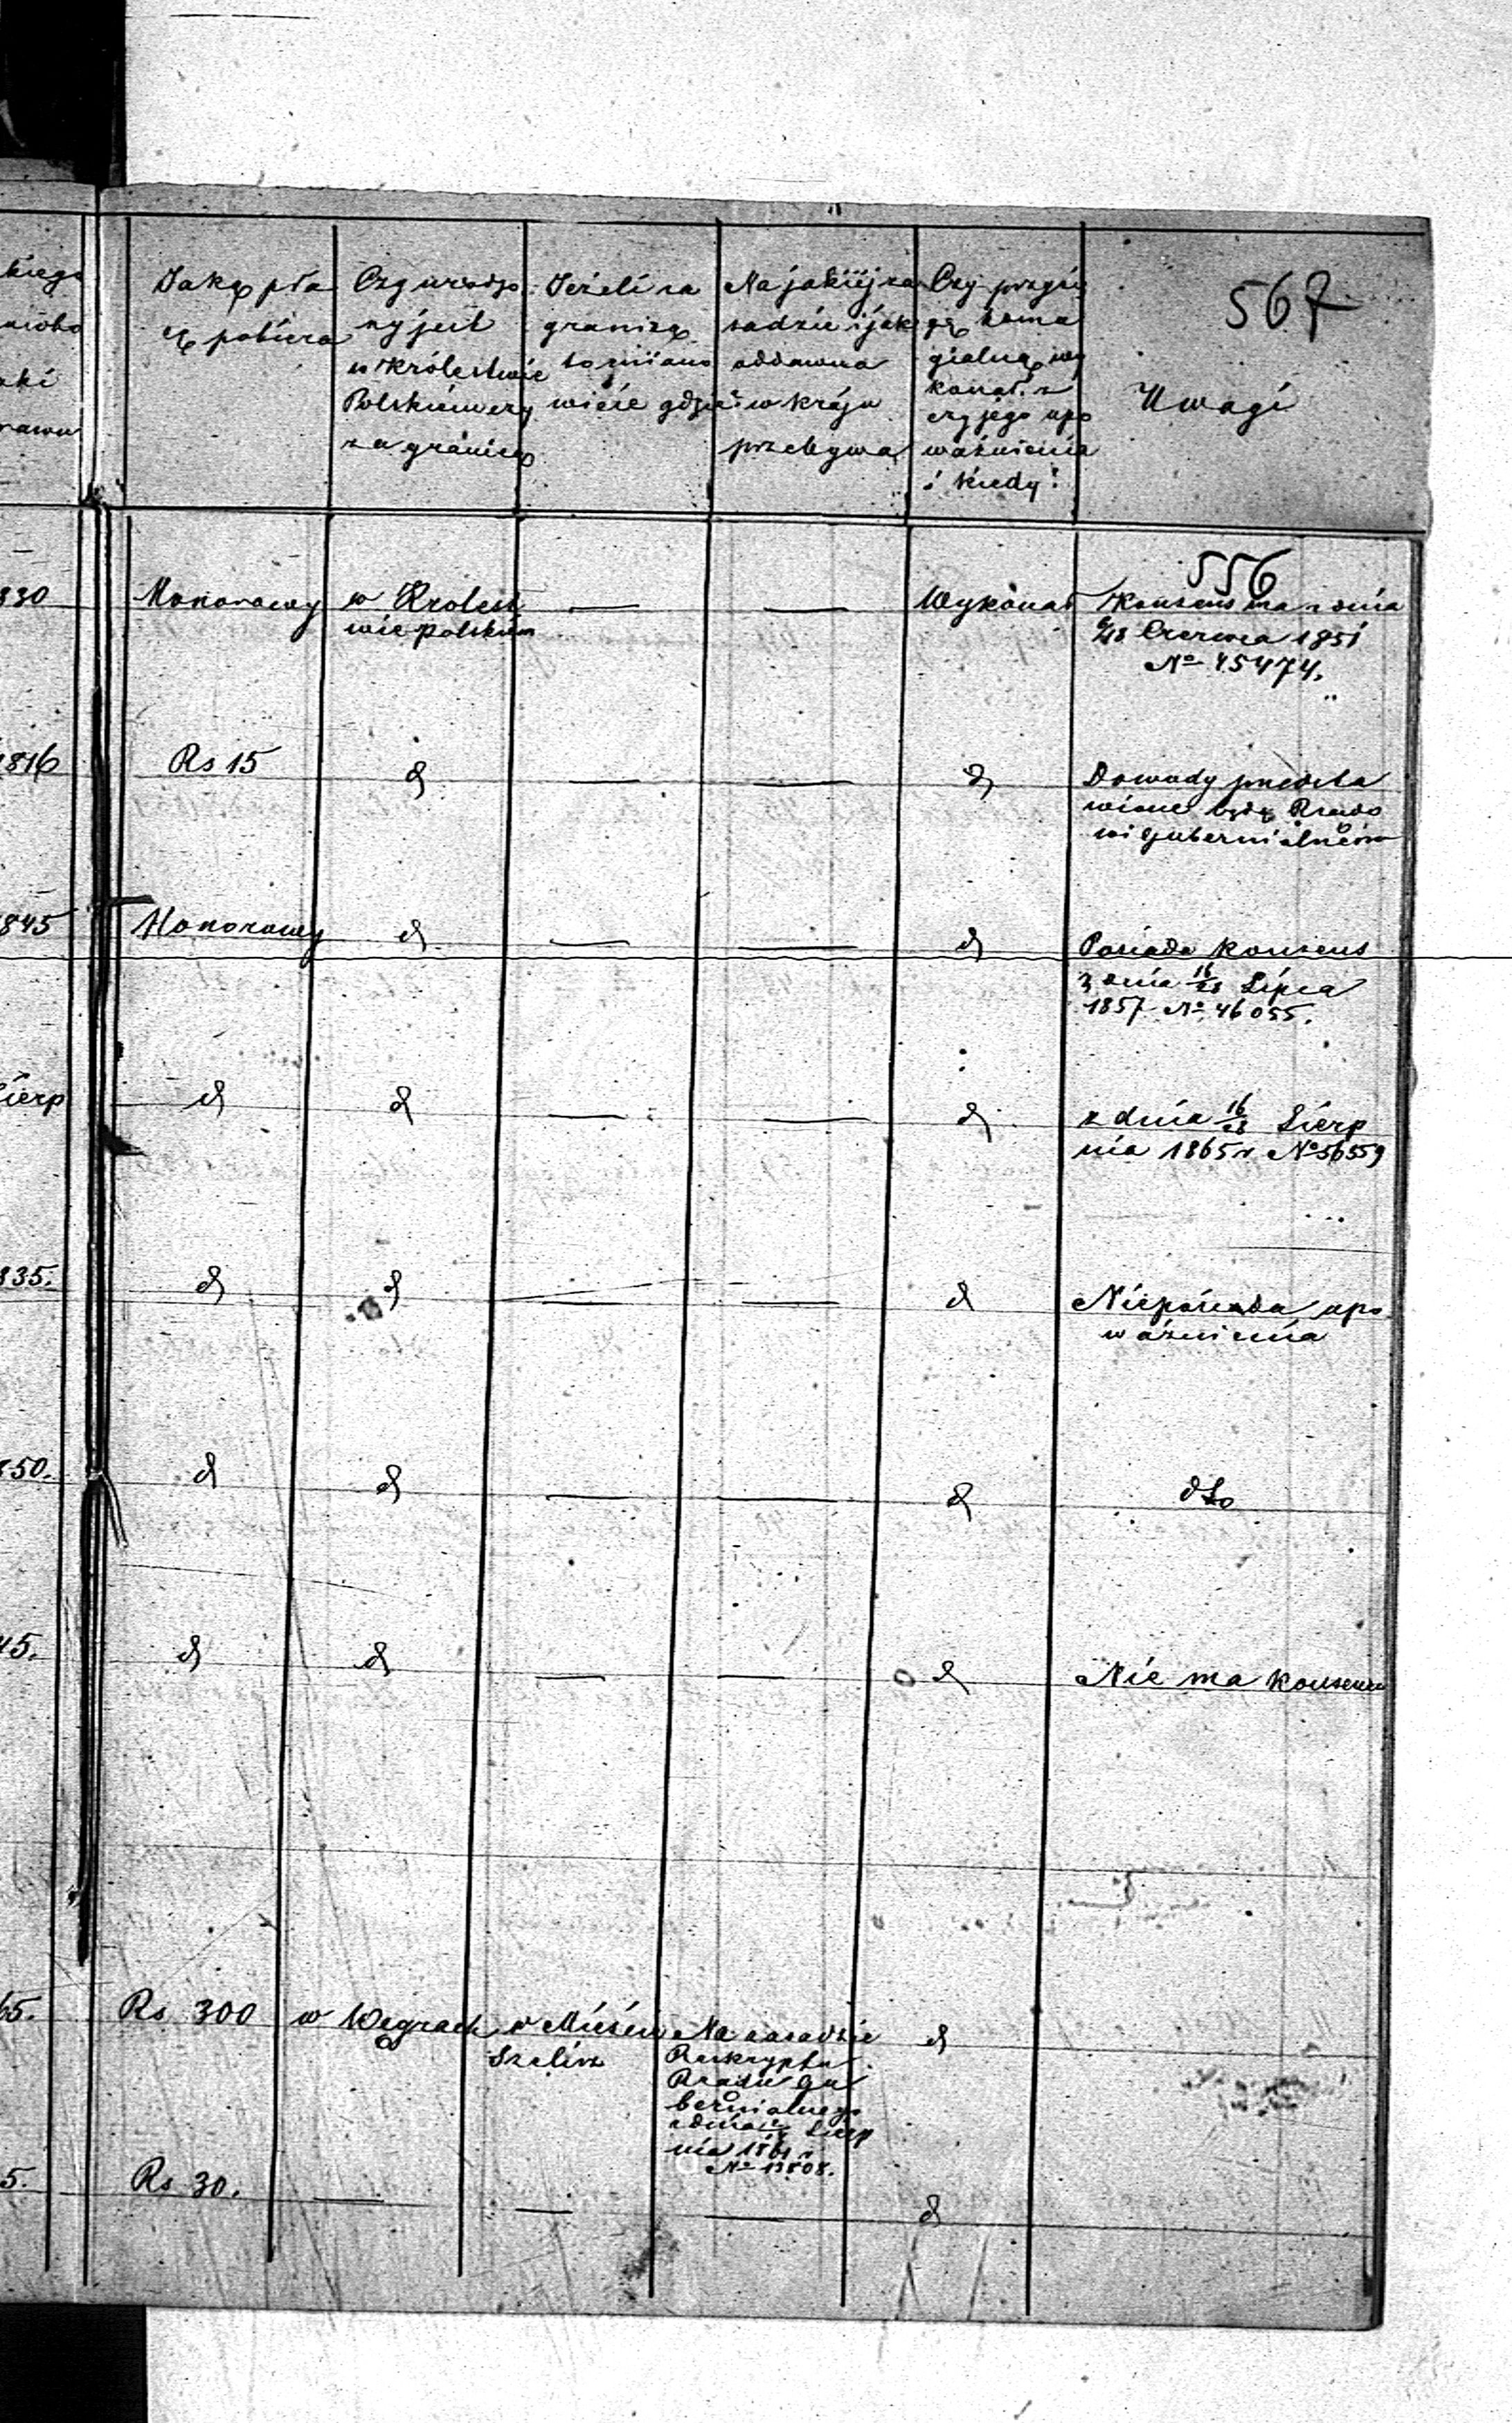 567
kiego
Jaką pła
cę pobiera
Czy urodzo
ny jest
w Królestwie
Polskiem czy
za granicą
Jeżeli za
granicą
to miano
wicie gdzie
Na jakiej za
sadzie i jak
oddawna
w kraju
przebywa
Czy przysię
gę homa
gialną wy
konał z
czy jego upo
ważnienia
i kiedy?
Uwagi
556
830
Honorowy
w Królest
wie polskiem
—
—
Wykonał
Konsens ma z dnia
6/18 Czerwca 1851
No 45474.
1816
Rs 15
d
—
—
d
Dowody przedsta
wione będą Rządo
wi Gubernialnemu
845
Honorowy
d
—
—
d
Posiada konsens
z dnia 16/28 Lipca
1857 No 46055.
Sierp
d
d
—
—
d
z dnia 16/28 Sierp
nia 1865 r No 56559
835.
d
d
—
—
d
Nieposiada upo
ważnienia
850.
d
d
—
—
d
dto
45.
d
d
—
—
d
Nie ma konsensu
65.
Rs 300
w Węgrach
w Mieście
Na zasadzie
Reskryptu
Rządu Gu
bernialnego
z dnia Sierp
nia 186
No 13808.
d
5.
Rs 30.
—
—
—
d